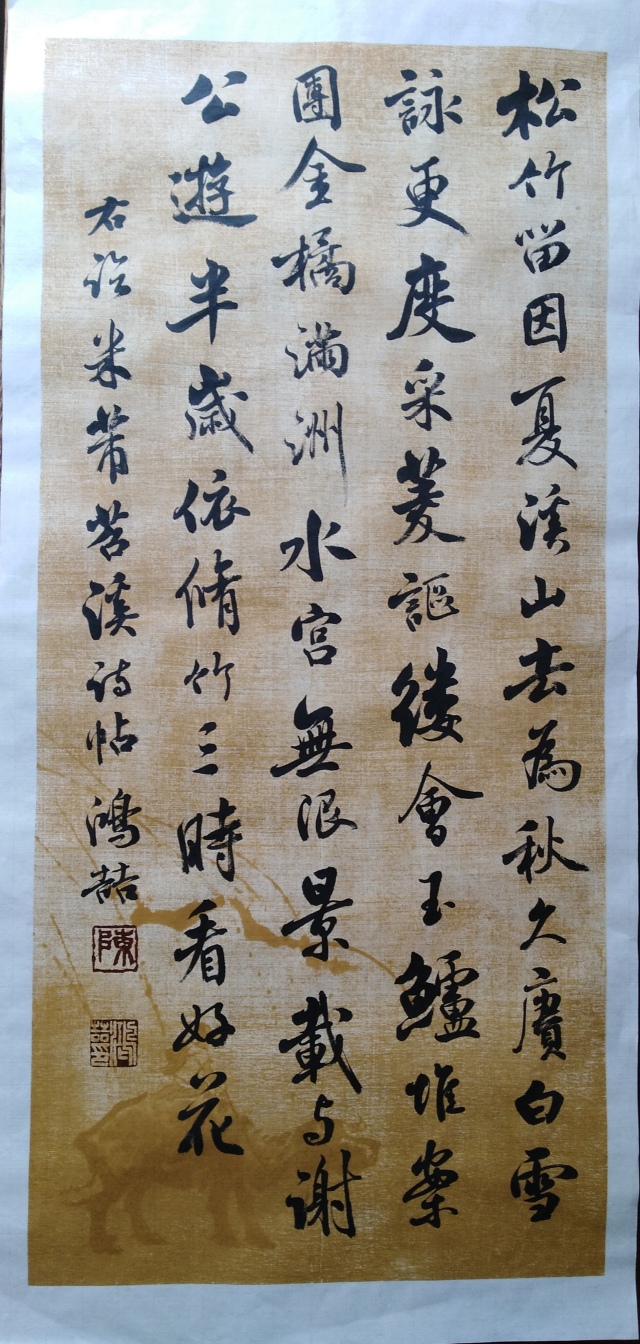 松竹留因夏溪山去為秋久賡白雪
詠更度采菱謳縷會玉鱸堆案
團金橘滿洲水宮無限景載与謝
公遊半歲依脩竹三時看好花
右临米芾苕溪诗帖鸿喆
陳